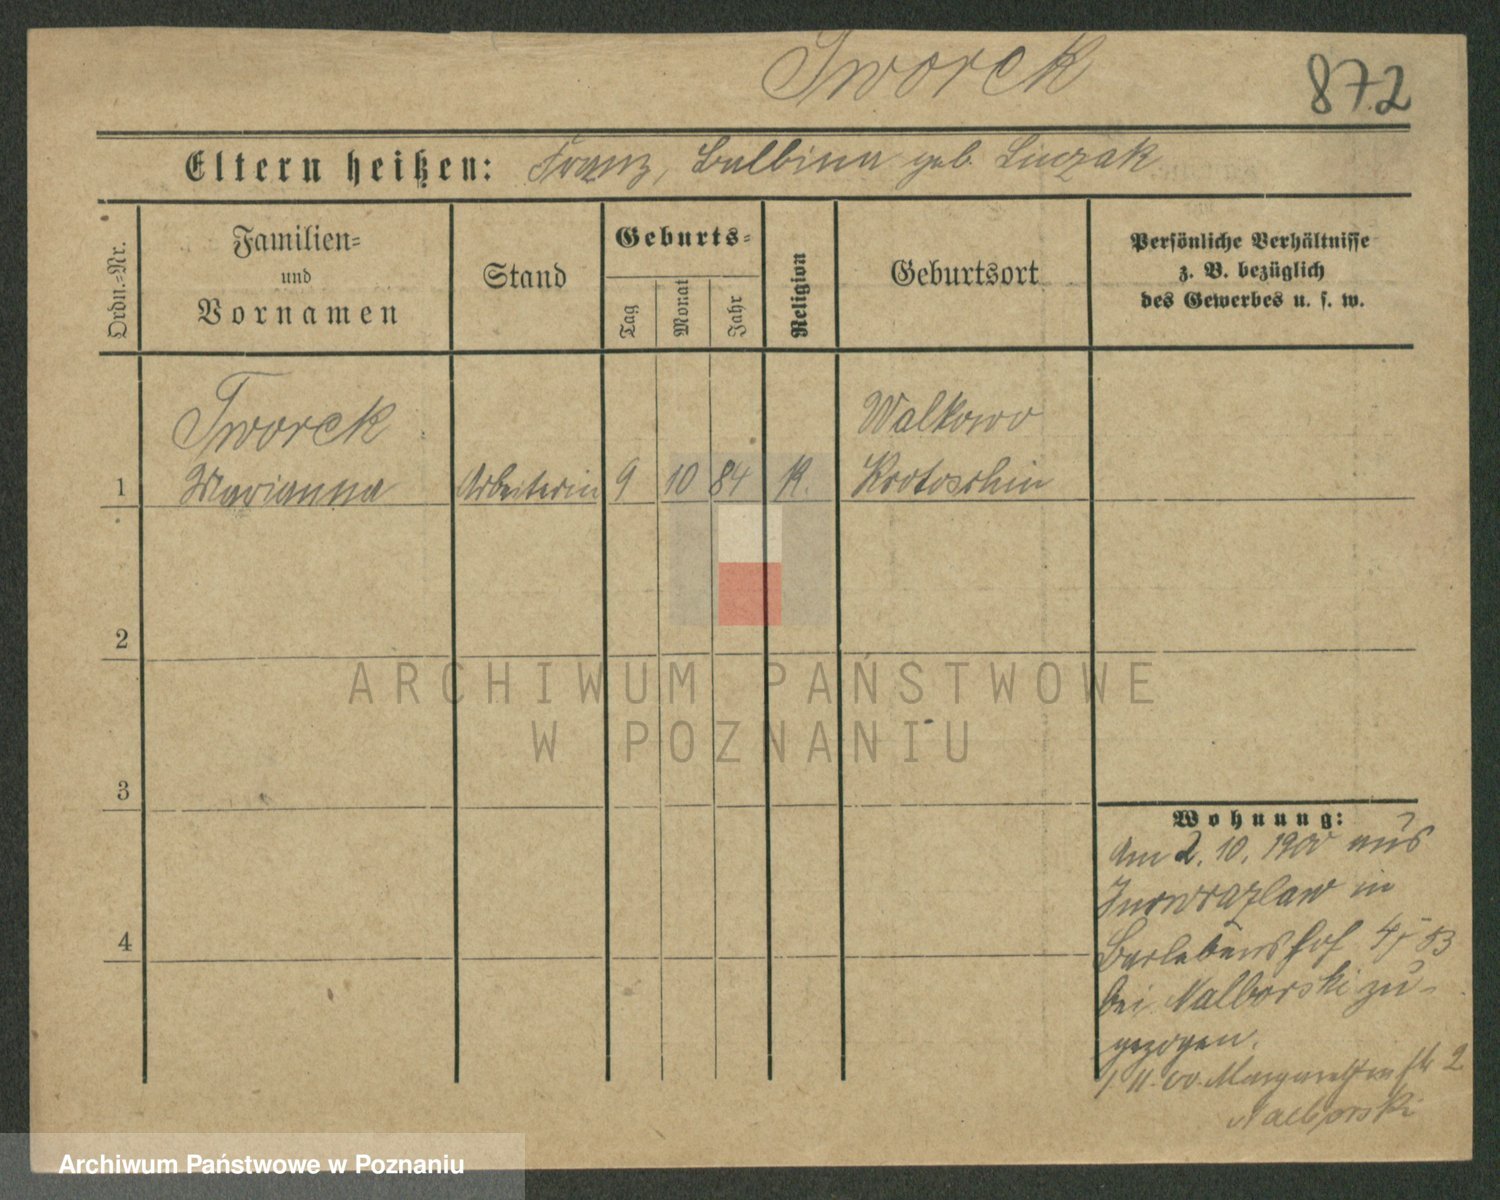 Tworek
872
Eltern heißen: Franz, Balbina geb. Liczak
Ordn.=Nr.
Familien=
und
Vornamen
Stand
Geburts=
Tag
Monat
Jahr
Religion
Geburtsort
Persönliche Verhältnisse
z. B. bezüglich
des Gewerbes u. s. w.
Tworek
Walkowo
1 Marianna Arbeiterin 9 10 84 K. Krotoschin
2
3
4
Wohnung:
Am 2. 10. 1900 aus
Inowrazlaw in
Bei Nalborski zu-
gezogen.
1 11. 00. Margarethenstr 2
Nalborski
ARCHIWUM PAŃSTWOWE
W POZNANIU
Archiwum Państwowe w Poznaniu